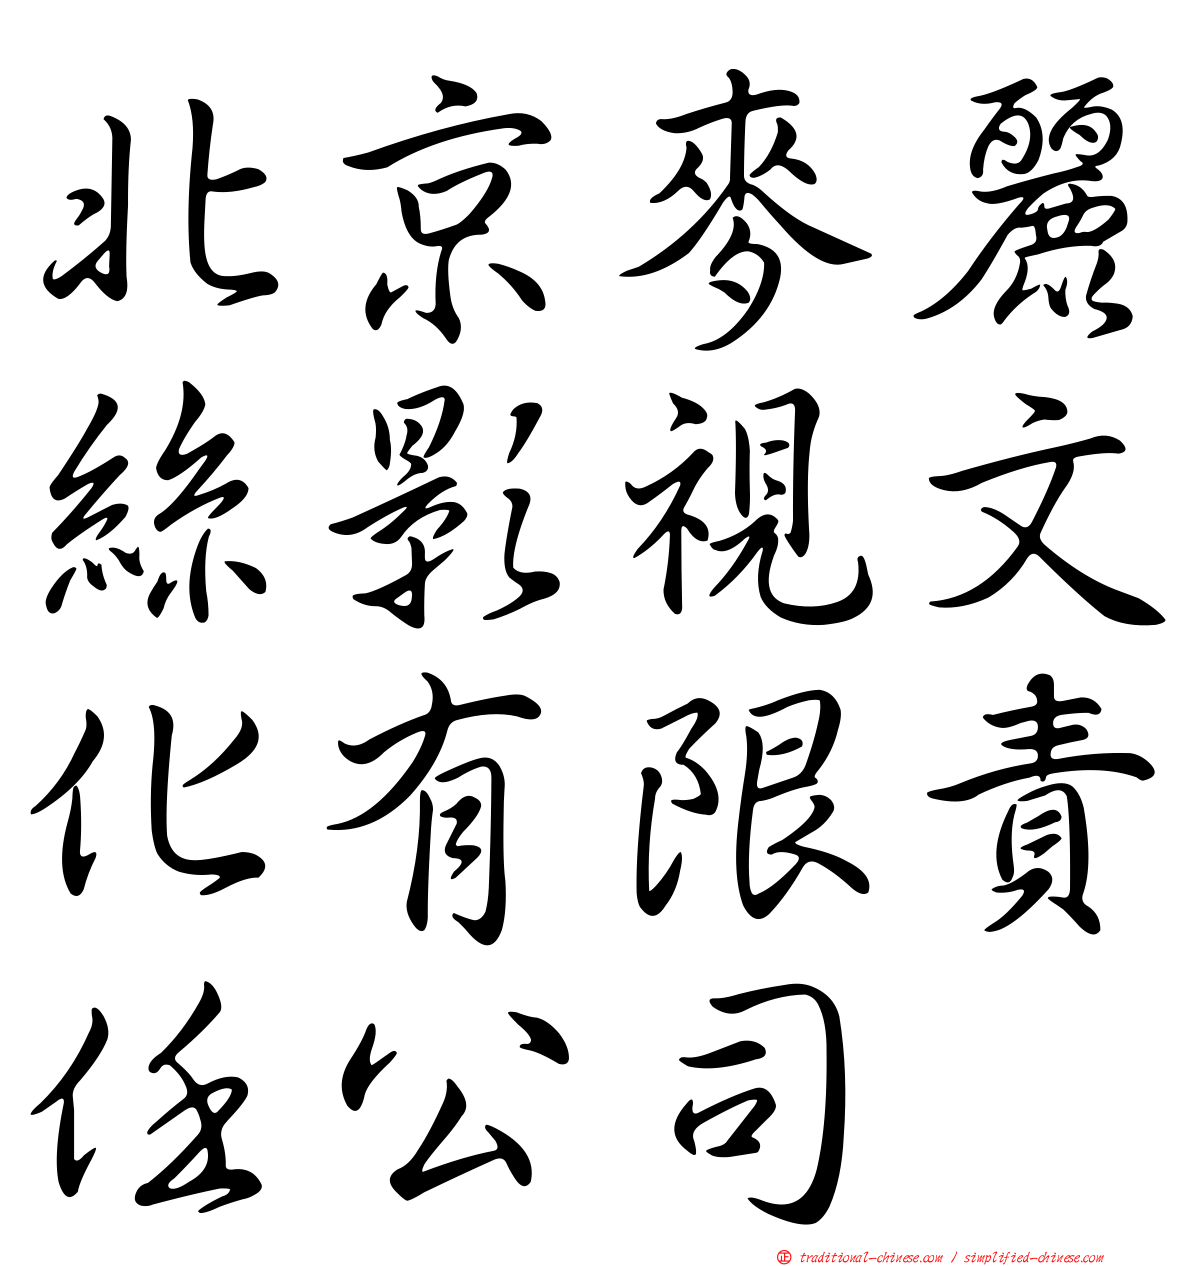 北京麥麗
絲影視文
化有限責
任公司
正 traditional-chinese.com / simplified-chinese.com